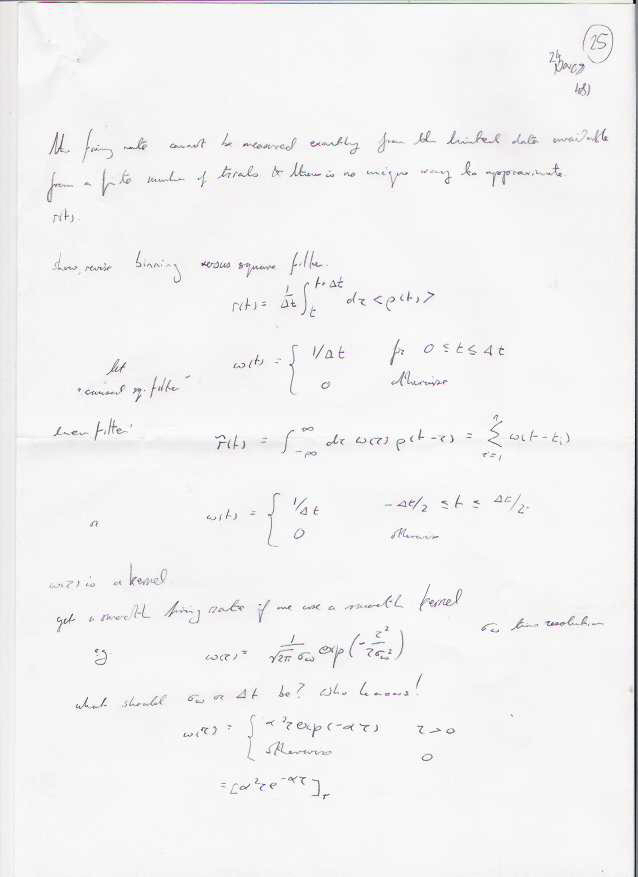 25
24
the firing rate cannot be measured exactly from the limited data available
from a finite number of trials & there is no unique way to approximate
r(t).
binning versus square filter.
r(t) = 1/Δt ∫_t^{t+Δt} dτ <ρ(t)>
let
"causal sq. filter"
w(t) = { 1/Δt for 0 ≤ t ≤ Δt
0 otherwise
linear filter
r̃(t) = ∫_{-∞}^{∞} dτ w(τ) ρ(t-τ) = Σ_{i=1}^{n} w(t-t_i)
or
w(t) = { 1/Δt -Δt/2 ≤ t ≤ Δt/2.
0 otherwise
w(τ) is a kernel
get a smooth firing rate if we use a smooth kernel
eg w(τ) = 1/(√2π σ_w) exp(-τ²/2σ_w²) σ_w time resolution
what should σ_w or Δt be? Who knows!
w(τ) = { α²τ exp(-ατ) τ>0
otherwise 0
= [α²τe^{-ατ}]_+